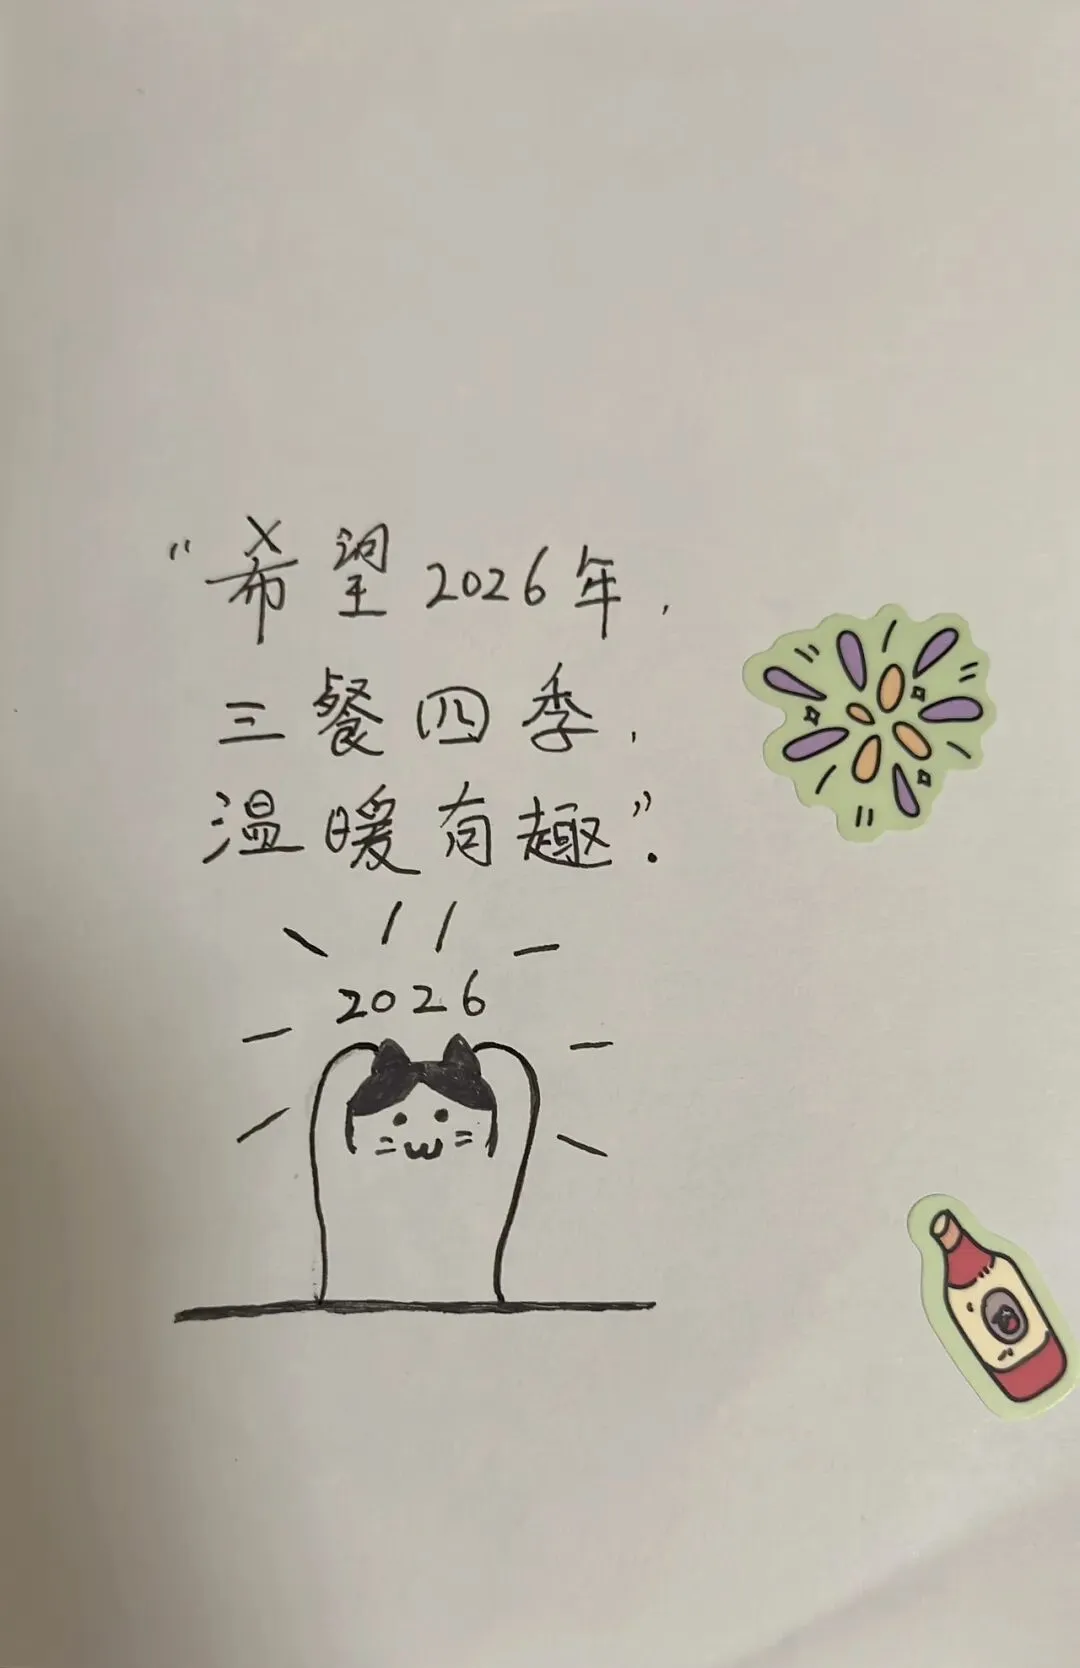 “希望2026年，
三餐四季，
温暖有趣”.
2026